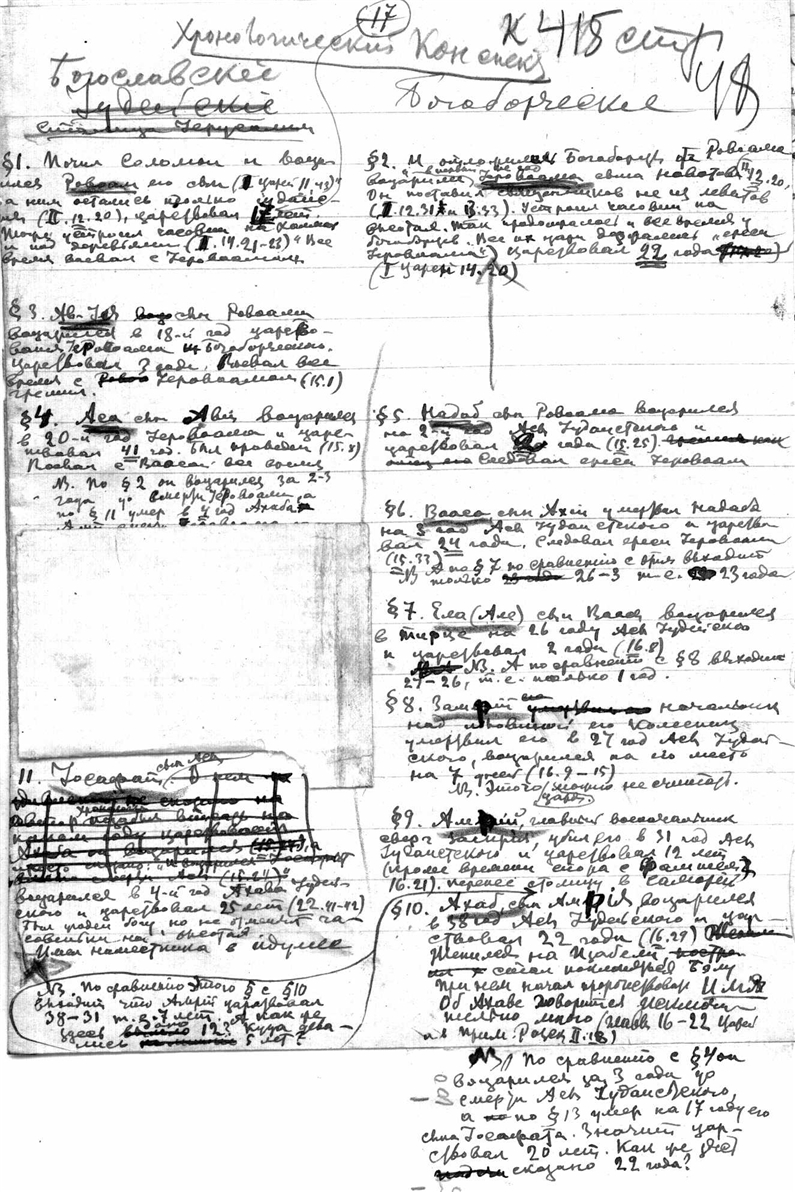 17
К 418 стр
48
Хронологический Конспект
Богославские
Иудейские
столица Иерусалим
§1. Почил Соломон и воца-
рился Ровоам его сын (II Царей 11,43)
за ним осталось только Иудейс-
(II.12.20), царствовал 17 лет
Тоже устроил часовни на холмах
и под деревьями (II.14.21-23) Все
время воевал с Иеровоамом
§3. Ав-Ия сын Ровоама
воцарился в 18-й год царство-
вания Иеровоама Богоборческого.
Царствовал 3 года. Воевал все
время с Иеровоамом (15.1)
грешил.
§4. Аса сын Авия воцарился
в 20-й год Иеровоама и царс-
твовал 41 год. Был праведен (15.8)
Воевал с Ваасой все время
N3. По §2 он воцарился за 2-3
года до смерти Иеровоама, а
по §11 умер в 4 год Ахава
11. Иосафат сын Асы
воцарился в 4-й год Ахава Иудей-
ского и царствовал 25 лет (22.41-42)
Был угоден богу но не отменил ча-
совенки на высотах
Имел наместника в Идумее
N3. По сравнению этого § с §10
выходит что Амрий царствовал
38-31 т.е. 7 лет. А как же
здесь 12? Куда дева-
лись 5 лет?
Богоборческие
§2. И отложились Богоборцы от Ровоама
воцарили Иеровоама сына Навата (II 12.20,
Он поставил священников не из левитов
(II.12.31 и 13.33). Устроил часовни на
высотах. Так продолжалось и все время у
богоборцев. Все их цари держались „ереси
Иеровоама“ царствовал 22 года
(I Царей 14.20)
§5. Надаб сын Ровоама воцарился
на 2-й год Асы Иудейского и
царствовал 2 года (15.25)
Следовал ереси Иеровоам
§6. Вааса сын Ахии умертвил Надаба
на 3 год Асы Иудейского и царство-
вал 24 года. Следовал ереси Иеровоама
(15.33)
N3 А по §7 по сравнению с этим выходит
только 26-3 т.е. 23 года
§7. Ела (Але) сын Ваасы воцарился
в Тирце на 26 году Асы Иудейского
и царствовал 2 года (16.8)
N3. А по сравнению с §8 выходит
27-26, т.е. только 1 год.
§8. Замрий начальник
над половиной его колесниц
умертвил его в 27 год Асы Иудей-
ского, воцарился на его место
на 7 дней (16.9-15)
N3. Этого можно не считать.
§9. Амрий, главный военачальник
сверг Замрия, убил его в 31 год Асы
Иудейского и царствовал 12 лет
(кроме времени спора с Фамнием
16.21). перенес столицу в Самарию
§10. Ахаб сын Амрия воцарился
в 38 год Асы Иудейского и цар-
ствовал 22 года (16.29)
Женился на Изабели,
стал поклоняться Баалу
При нем начал пророчествовать Илия
Об Ахаве говорится
много (главы 16-22 Царей
N3) По сравнению с §4 он
воцарился за 3 года до
смерти Асы Иудейского,
а по §13 умер на 17 году его
сына Иосафата. Значит цар-
ствовал 20 лет. Как же
сказано 22 года?